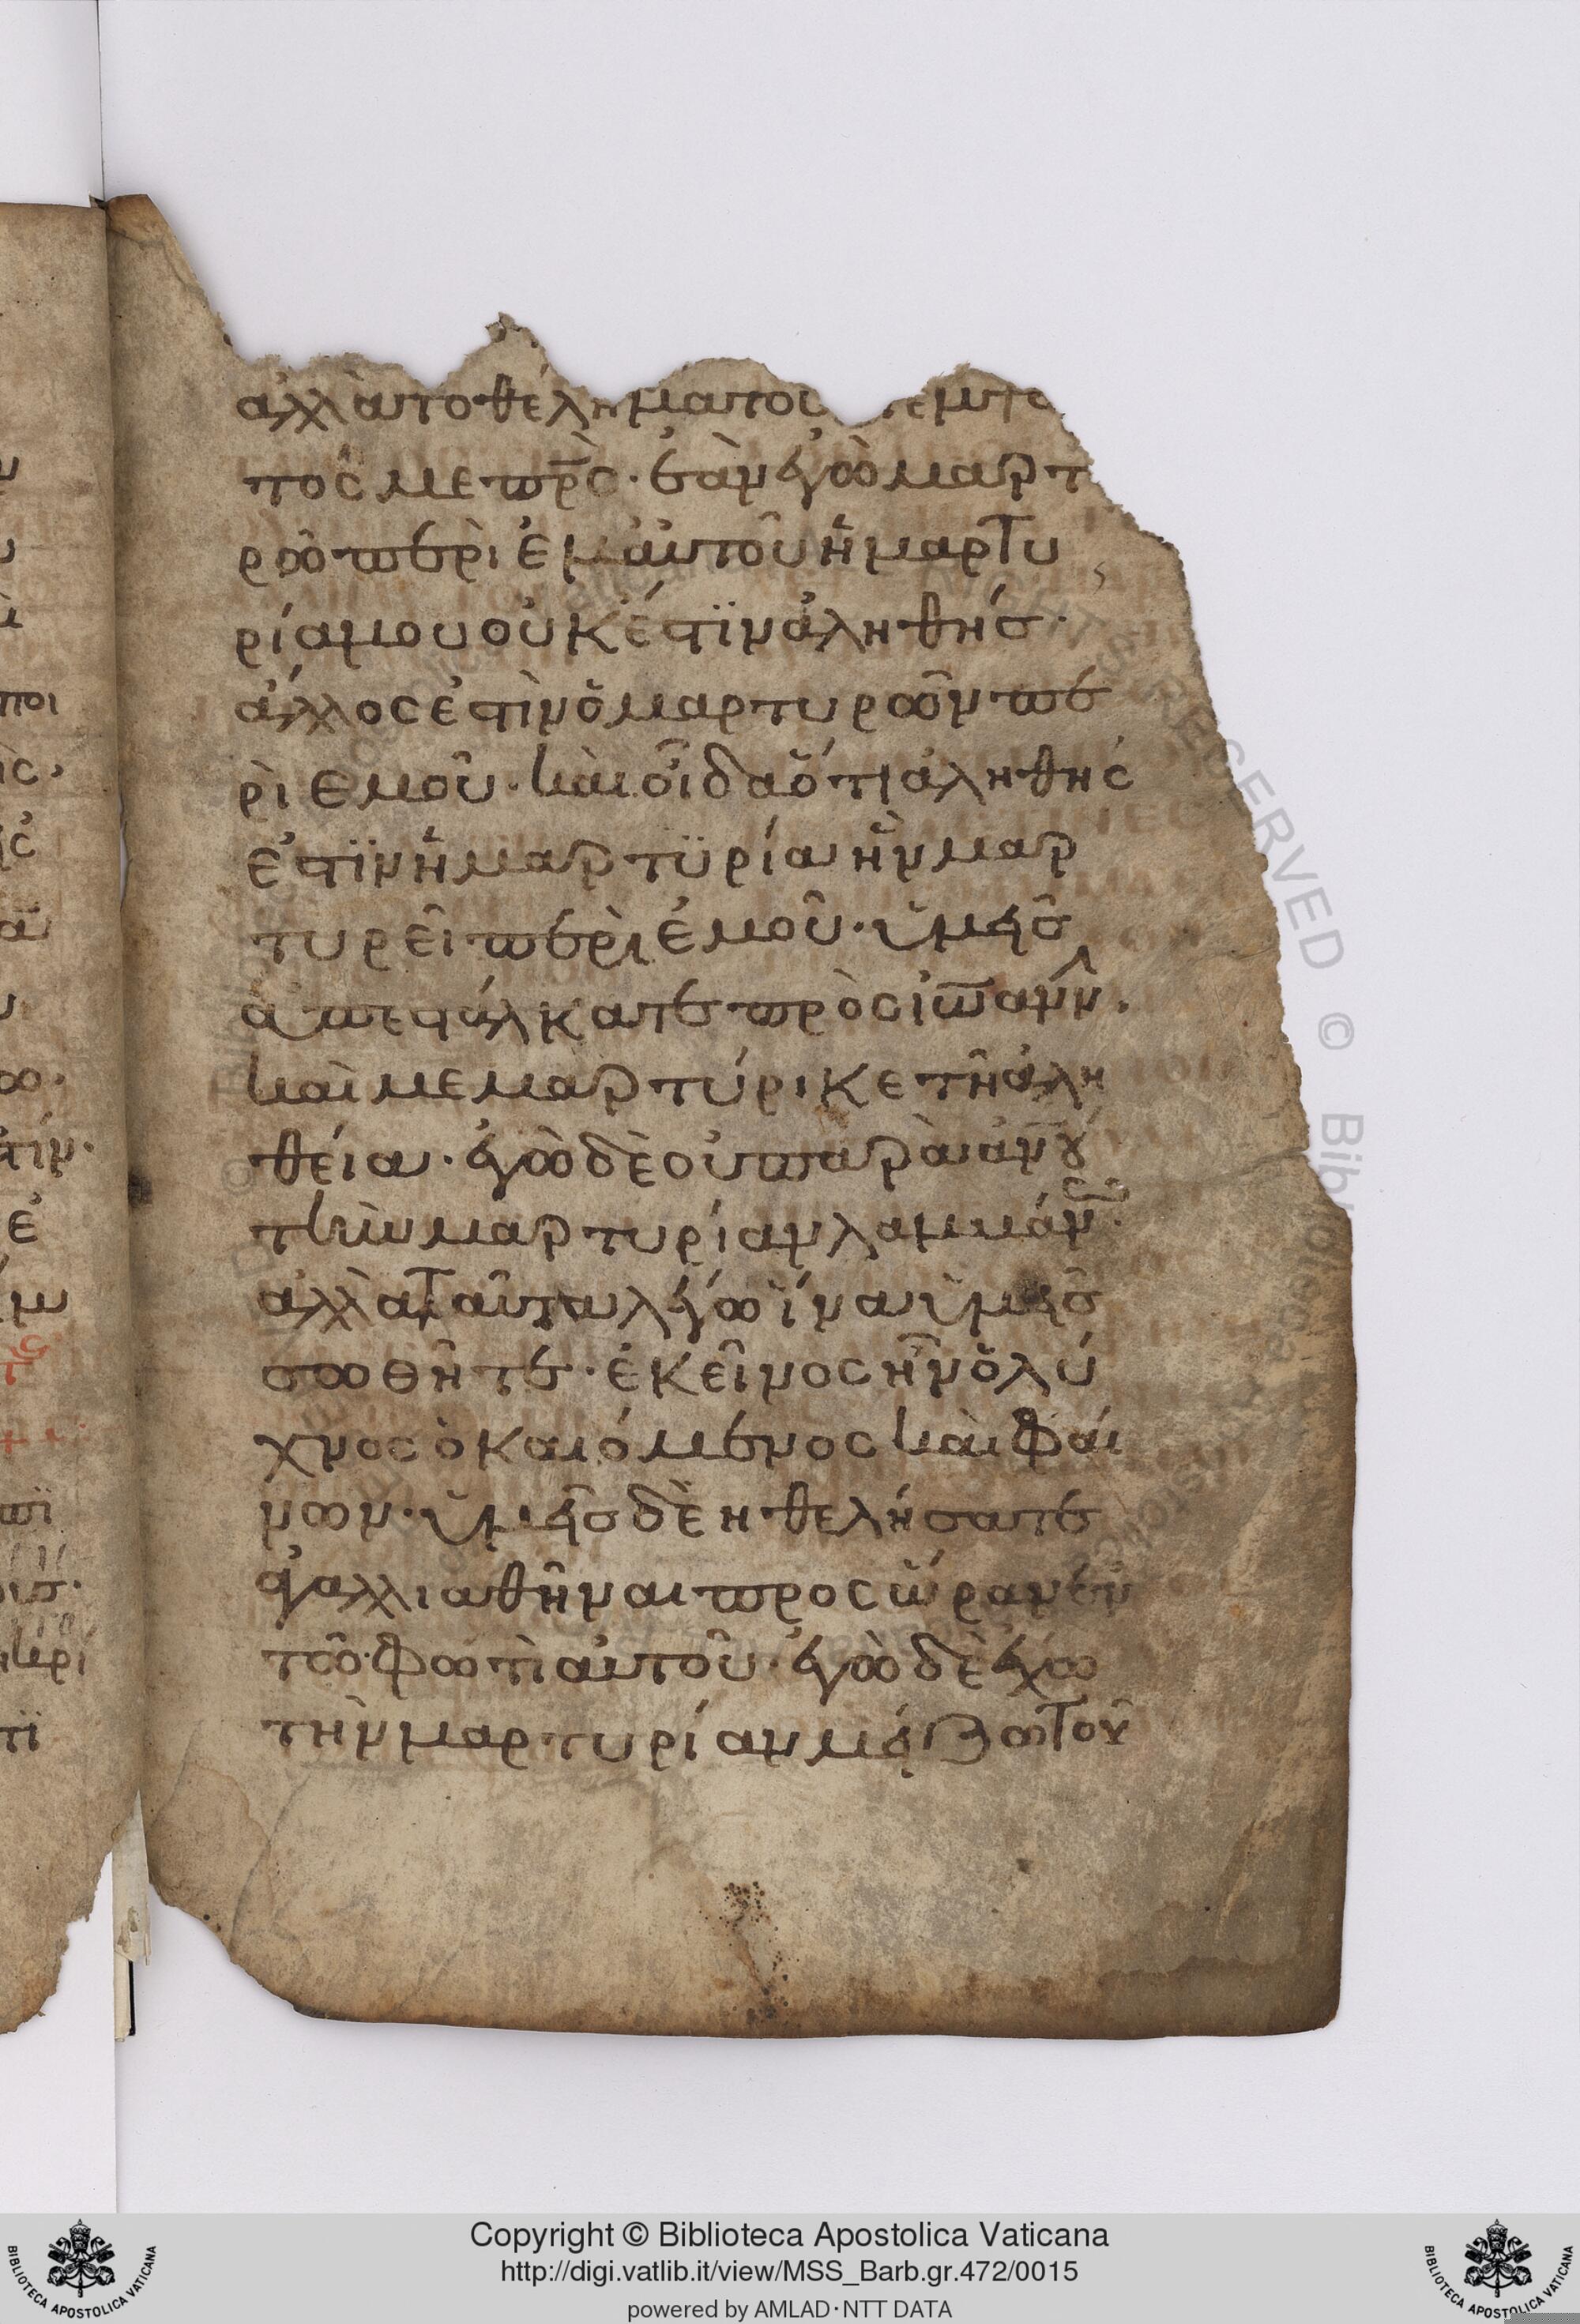 ἀλλὰ τὸ θέλημα τοῦ πέμψα
τός με πρ̅ς· ἐὰν ἐγὼ μαρτ
ρῶ περὶ ἐμαυτοῦ ἡ μαρτυ
ρία μου οὐκ ἔστϊν ἀληθής·
ἄλλος ἐστὶν ὁ μαρτυρῶν πε
ρὶ ἐμοῦ· καὶ οἶδα ὅτι ἀληθής
ἐστϊν ἡ μαρτϋρία ἣν μαρ
τυρεῖ περὶ ἐμοῦ· ὑμεῖς
ἀπεστάλκατε πρὸς ἰω̅άνν·
καὶ μεμαρτύρικε τῆ ἀλη
θεία· ἐγὼ δὲ οὐ παρὰ ἀν̅ου
τὴν μαρτυρίαν λαμμάν·
ἀλλὰ ταῦτα λέγω ἵνα ὑμεῖς
σωθῆτε· ἐκεῖνος ἦν ὁ λύ
χνος ὁ καιόμενος καὶ φαί
νων· ὑμεῖς δὲ ηθελήσατε
ἀγαλλιαθῆναι προς ὥραν ἐν
τῶ φωτὶ αὐτοῦ· ἐγὼ δὲ ἔχω
τὴν μαρτυρίαν μείζω τοῦ
Copyright © Biblioteca Apostolica Vaticana
http://digi.vatlib.it/view/MSS_Barb.gr.472/0015
powered by AMLAD·NTT DATA
BIBLIOTECA APOSTOLICA VATICANA
BIBLIOTECA APOSTOLICA VATICANA